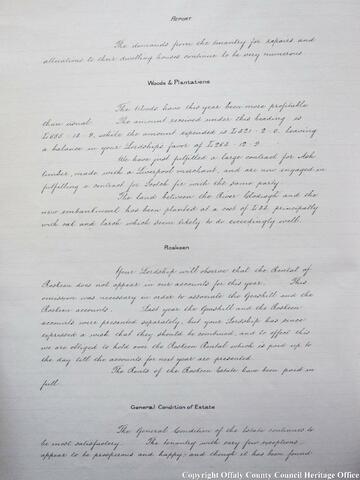 REPORT
The demands from the tenantry for repairs and
alterations to their dwelling houses continue to be very numerous.
Woods & Plantations
The Woods have this year been more profitable
than usual. The amount received under this heading is
while the amount expended is £321 - 2 - 0, leaving
a balance in your Lordship's favor of
We have just fulfilled a large contract for Ash
timber, made with a Liverpool merchant, and are now engaged in
fulfilling a contract for Scotch fir with the same party.
The land between the River Clodiagh and the
new embankment has been planted at a cost of principally
with oak and larch which seem likely to do exceedingly well.
Roskeen
Your Lordship will observe that the Rental of
Roskeen does not appear in our accounts for this year. This
omission was necessary in order to assimilate the Geashill and the
Roskeen accounts. Last year the Geashill and the Roskeen
accounts were presented separately, but your Lordship has since
expressed a wish that they should be combined, and to effect this
we are obliged to hold over the Roskeen Rental which is paid up to
the day till the accounts for next year are presented.
The Rents of the Roskeen Estate have been paid in
full.
General Condition of Estate
The General Condition of the Estate continues to
be most satisfactory. The tenantry with very few exceptions
appear to be prosperous and happy; and though it has been found
Copyright Offaly County Council Heritage Office